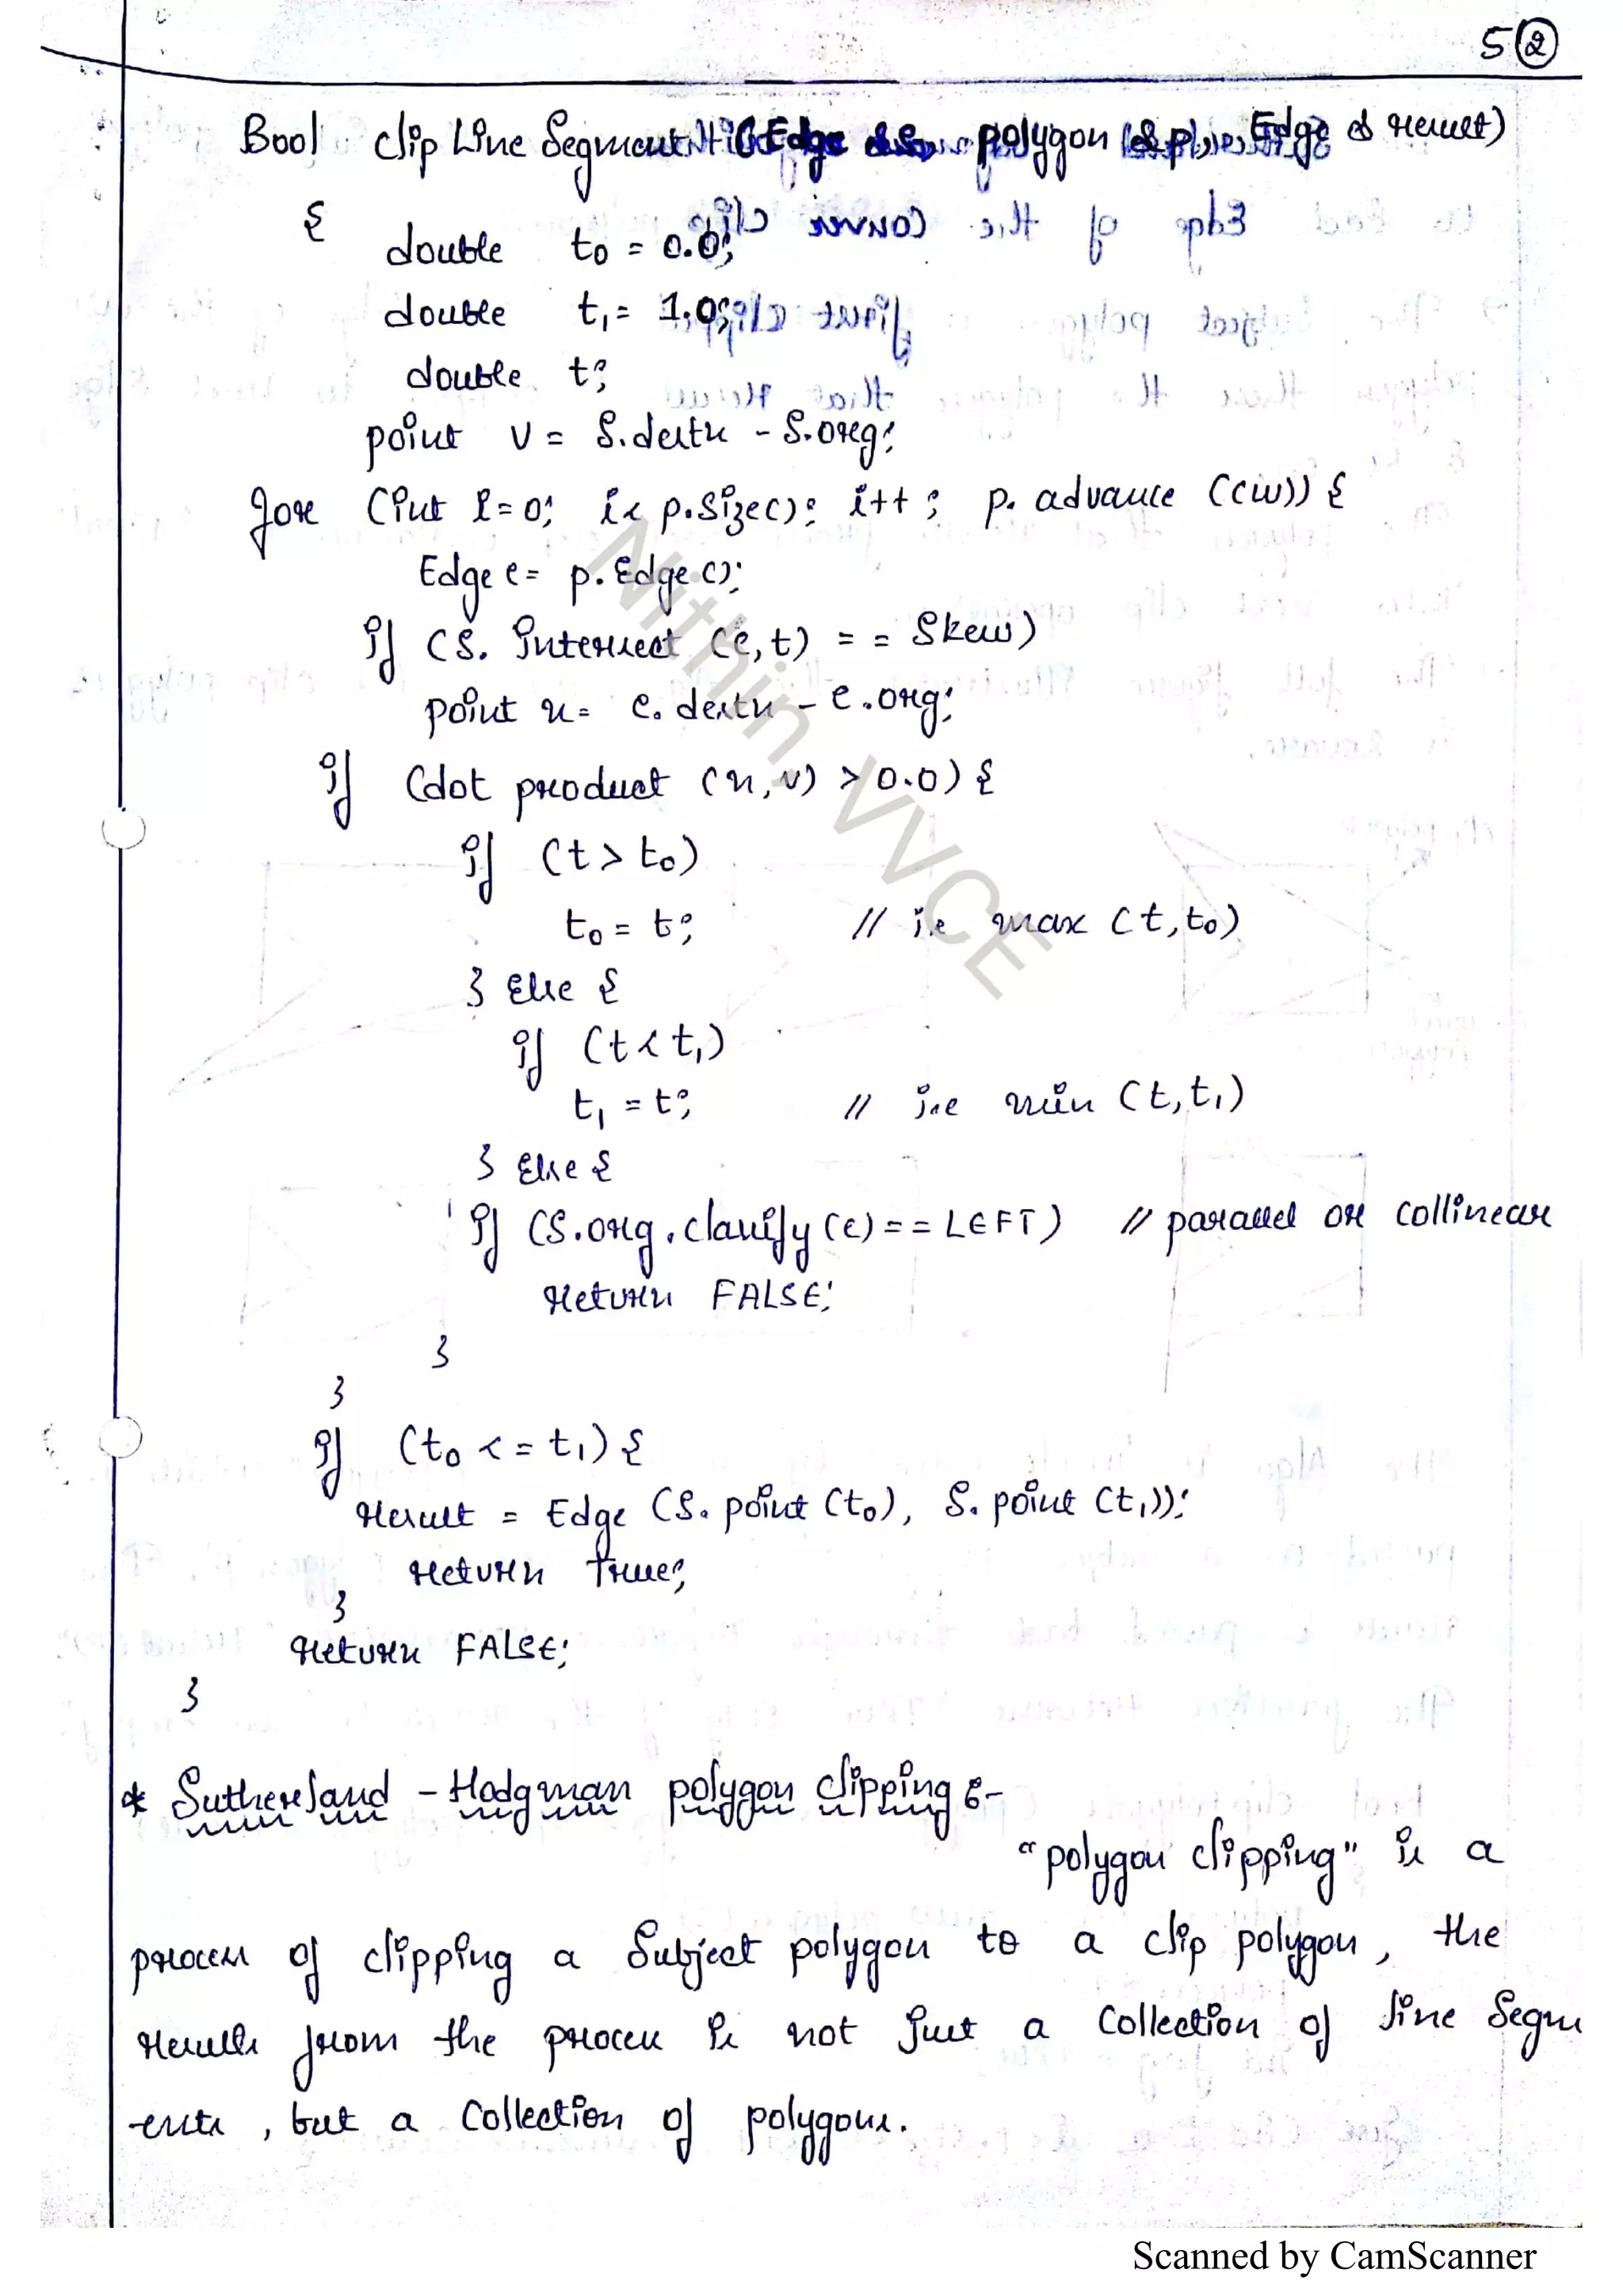 5 (2)
Bool clip Line Segment (Edge &S, polygon &p, Edge & result)
{
double t0 = 0.0;
double t1 = 1.0;
double t;
point v = S.destn - S.org;
for (int i=0; i< p.size(); i++ ; p. advance (cw)) {
Edge e = p. Edge();
if (S. intersect (e, t) = = Skew)
point n = e. destn - e.org;
if (dot product (n, v) > 0.0) {
if (t > t0)
t0 = t; // i.e max (t, t0)
} Else {
if (t < t1)
t1 = t; // i.e min (t, t1)
} Else {
if (S.org.classify (e) = = LEFT) // parallel or collinear
return FALSE;
}
}
if (t0 < = t1) {
result = Edge (S. point (t0), S. point (t1));
return True;
}
return FALSE;
}
* Sutherland - Hodgman polygon clipping :-
"polygon clipping" is a
process of clipping a Subject polygon to a clip polygon, the
results from the process is not just a collection of line Segm
-ents , but a collection of polygons.
Nithin, VVCE
Scanned by CamScanner